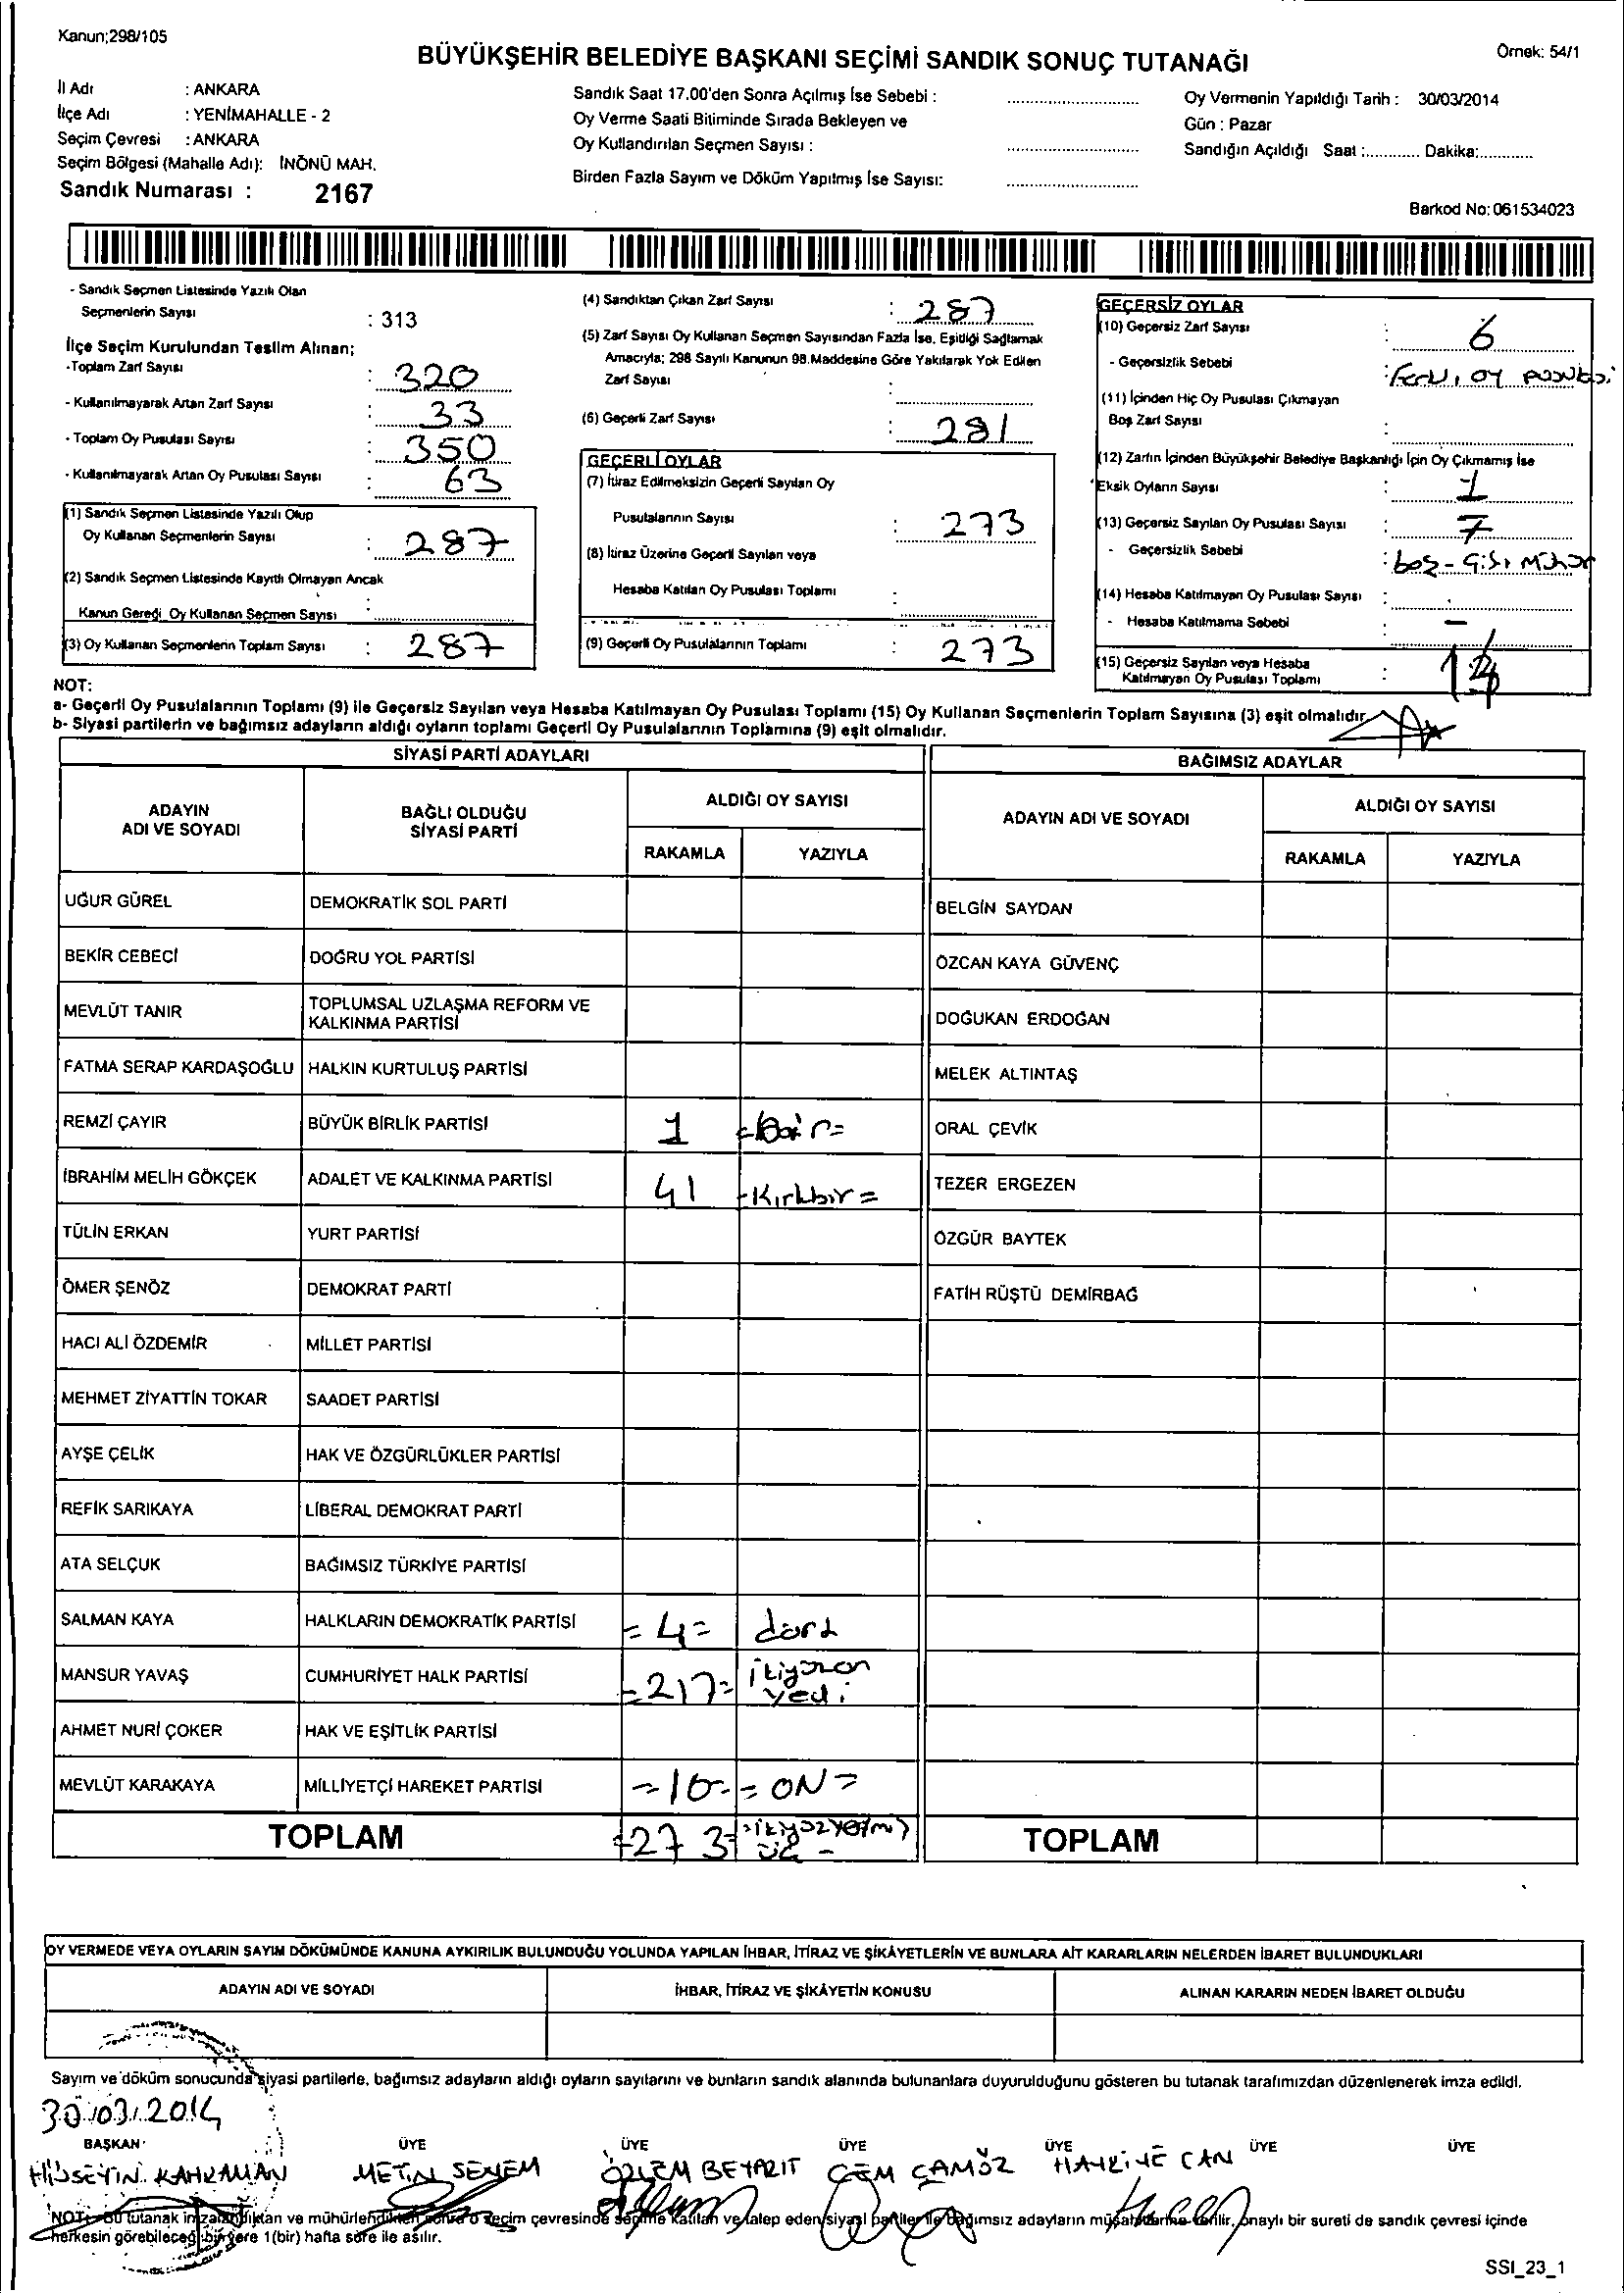 Kanun;298/105
BÜYÜKŞEHİR BELEDİYE BAŞKANI SEÇİMİ SANDIK SONUÇ TUTANAĞI
Örnek: 54/1
İl Adı : ANKARA
İlçe Adı : YENİMAHALLE - 2
Seçim Çevresi : ANKARA
Seçim Bölgesi (Mahalle Adı): İNÖNÜ MAH.
Sandık Numarası : 2167
Sandık Saat 17.00'den Sonra Açılmış İse Sebebi :
Oy Verme Saati Bitiminde Sırada Bekleyen ve
Oy Kullandırılan Seçmen Sayısı :
Birden Fazla Sayım ve Döküm Yapılmış İse Sayısı:
Oy Vermenin Yapıldığı Tarih : 30/03/2014
Gün : Pazar
Sandığın Açıldığı Saat :............ Dakika:............
Barkod No: 061534023
- Sandık Seçmen Listesinde Yazılı Olan
Seçmenlerin Sayısı : 313
İlçe Seçim Kurulundan Teslim Alınan;
-Toplam Zarf Sayısı : 320
- Kullanılmayarak Artan Zarf Sayısı : 33
- Toplam Oy Pusulası Sayısı : 350
- Kullanılmayarak Artan Oy Pusulası Sayısı : 63
(1) Sandık Seçmen Listesinde Yazılı Olup
Oy Kullanan Seçmenlerin Sayısı : 287
(2) Sandık Seçmen Listesinde Kayıtlı Olmayan Ancak
Kanun Gereği Oy Kullanan Seçmen Sayısı :
(3) Oy Kullanan Seçmenlerin Toplam Sayısı : 287
(4) Sandıktan Çıkan Zarf Sayısı : 287
(5) Zarf Sayısı Oy Kullanan Seçmen Sayısından Fazla İse, Eşitliği Sağlamak
Amacıyla; 298 Sayılı Kanunun 98.Maddesine Göre Yakılarak Yok Edilen
Zarf Sayısı :
(6) Geçerli Zarf Sayısı : 281
GEÇERLİ OYLAR
(7) İtiraz Edilmeksizin Geçerli Sayılan Oy
Pusulalarının Sayısı : 273
(8) İtiraz Üzerine Geçerli Sayılan veya
Hesaba Katılan Oy Pusulası Toplamı :
(9) Geçerli Oy Pusulalarının Toplamı : 273
GEÇERSİZ OYLAR
(10) Geçersiz Zarf Sayısı : 6
- Geçersizlik Sebebi : oy
(11) İçinden Hiç Oy Pusulası Çıkmayan
Boş Zarf Sayısı :
(12) Zarfın İçinden Büyükşehir Belediye Başkanlığı İçin Oy Çıkmamış İse
Eksik Oyların Sayısı : 1
(13) Geçersiz Sayılan Oy Pusulası Sayısı : 7
- Geçersizlik Sebebi : boş - Çift Mühür
(14) Hesaba Katılmayan Oy Pusulası Sayısı :
- Hesaba Katılmama Sebebi : -
(15) Geçersiz Sayılan veya Hesaba
Katılmayan Oy Pusulası Toplamı : 14
NOT:
a- Geçerli Oy Pusulalarının Toplamı (9) ile Geçersiz Sayılan veya Hesaba Katılmayan Oy Pusulası Toplamı (15) Oy Kullanan Seçmenlerin Toplam Sayısına (3) eşit olmalıdır.
b- Siyasi partilerin ve bağımsız adayların aldığı oyların toplamı Geçerli Oy Pusulalarının Toplamına (9) eşit olmalıdır.
SİYASİ PARTİ ADAYLARI
BAĞIMSIZ ADAYLAR
ADAYIN ADI VE SOYADI
BAĞLI OLDUĞU SİYASİ PARTİ
ALDIĞI OY SAYISI
RAKAMLA YAZIYLA
ADAYIN ADI VE SOYADI
ALDIĞI OY SAYISI
RAKAMLA YAZIYLA
UĞUR GÜREL DEMOKRATİK SOL PARTİ BELGİN SAYDAN
BEKİR CEBECİ DOĞRU YOL PARTİSİ ÖZCAN KAYA GÜVENÇ
MEVLÜT TANIR TOPLUMSAL UZLAŞMA REFORM VE KALKINMA PARTİSİ DOĞUKAN ERDOĞAN
FATMA SERAP KARDAŞOĞLU HALKIN KURTULUŞ PARTİSİ MELEK ALTINTAŞ
REMZİ ÇAYIR BÜYÜK BİRLİK PARTİSİ 1 =Bir= ORAL ÇEVİK
İBRAHİM MELİH GÖKÇEK ADALET VE KALKINMA PARTİSİ 41 =Kırkbir= TEZER ERGEZEN
TÜLİN ERKAN YURT PARTİSİ ÖZGÜR BAYTEK
ÖMER ŞENÖZ DEMOKRAT PARTİ FATİH RÜŞTÜ DEMİRBAĞ
HACI ALİ ÖZDEMİR MİLLET PARTİSİ
MEHMET ZİYATTİN TOKAR SAADET PARTİSİ
AYŞE ÇELİK HAK VE ÖZGÜRLÜKLER PARTİSİ
REFİK SARIKAYA LİBERAL DEMOKRAT PARTİ
ATA SELÇUK BAĞIMSIZ TÜRKİYE PARTİSİ
SALMAN KAYA HALKLARIN DEMOKRATİK PARTİSİ =4= dört
MANSUR YAVAŞ CUMHURİYET HALK PARTİSİ =217= ikiyüzon yedi
AHMET NURİ ÇOKER HAK VE EŞİTLİK PARTİSİ
MEVLÜT KARAKAYA MİLLİYETÇİ HAREKET PARTİSİ =10= =ON=
TOPLAM =273= üç - TOPLAM
OY VERMEDE VEYA OYLARIN SAYIM DÖKÜMÜNDE KANUNA AYKIRILIK BULUNDUĞU YOLUNDA YAPILAN İHBAR, İTİRAZ VE ŞİKÂYETLERİN VE BUNLARA AİT KARARLARIN NELERDEN İBARET BULUNDUKLARI
ADAYIN ADI VE SOYADI İHBAR, İTİRAZ VE ŞİKÂYETİN KONUSU ALINAN KARARIN NEDEN İBARET OLDUĞU
Sayım ve döküm sonucunda siyasi partilerle, bağımsız adayların aldığı oyların sayılarını ve bunların sandık alanında bulunanlara duyurulduğunu gösteren bu tutanak tarafımızdan düzenlenerek imza edildi.
30/03/2014
BAŞKAN ÜYE ÜYE ÜYE ÜYE ÜYE ÜYE
HÜSEYİN KAHRAMAN METİN SENEM ÖZLEM BEYAZIT CEM ÇAMÖZ HAYRİYE CAN
NOT: Bu tutanak imzalandıktan ve mühürlendikten sonra o seçim çevresinde seçime katılan ve talep eden siyasi partiler ile bağımsız adayların müşahitlerine verilir, onaylı bir sureti de sandık çevresi içinde
herkesin görebileceği bir yere 1(bir) hafta süre ile asılır.
SSI_23_1